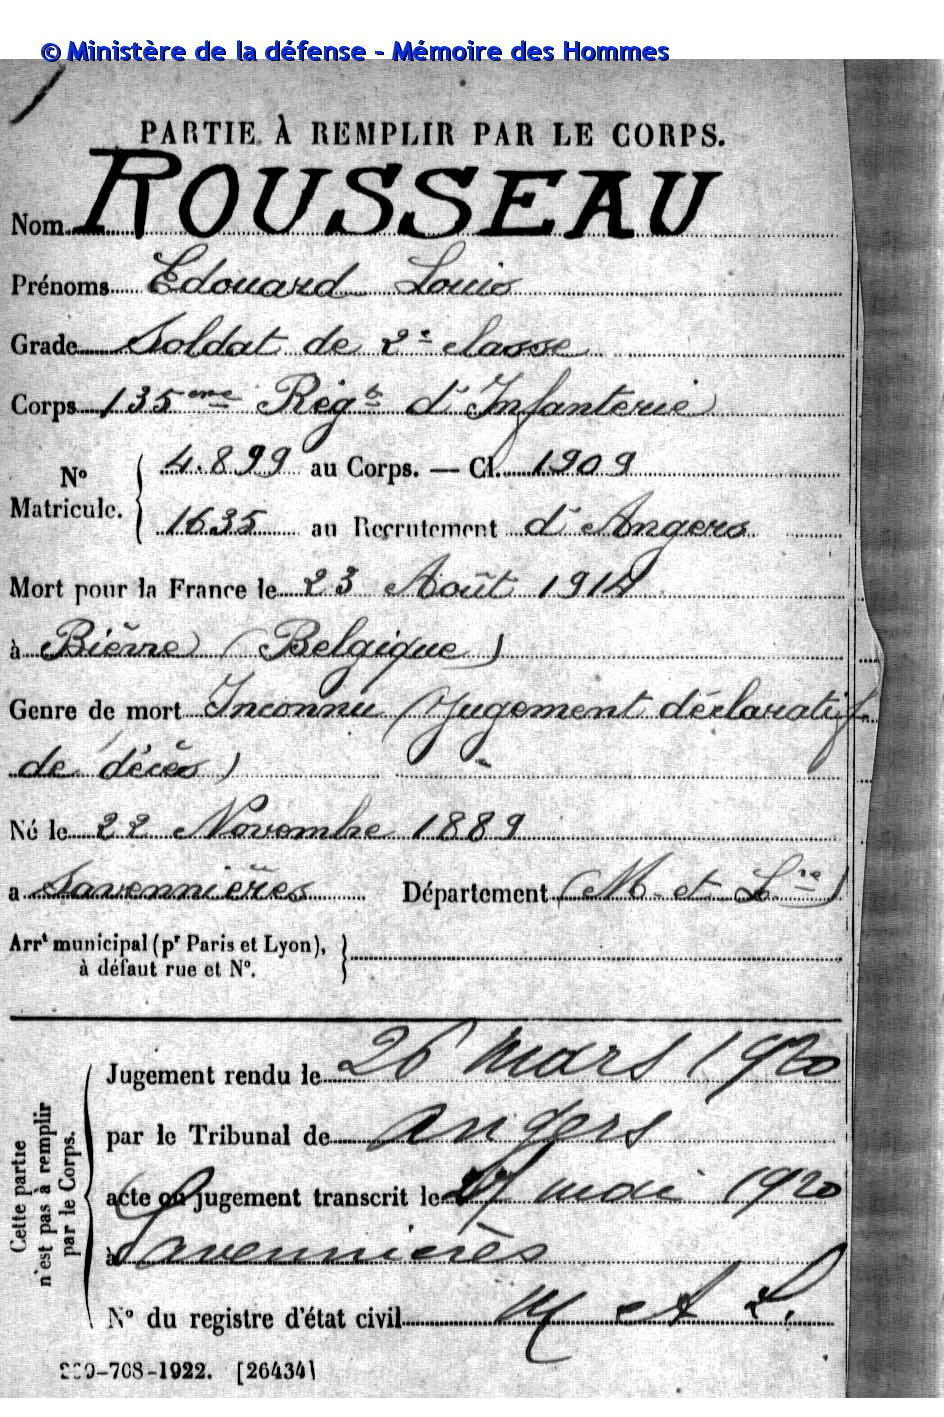 © Ministère de la défense - Mémoire des Hommes
PARTIE À REMPLIR PAR LE CORPS.
Nom ROUSSEAU
Prénoms Edouard Louis
Grade Soldat de 2e classe
Corps 135eme Régt d'Infanterie
No Matricule. { 4.899 au Corps. — Cl. 1909
1635 au Recrutement d'Angers
Mort pour la France le 23 Août 1914
à Bièvre (Belgique)
Genre de mort Inconnu (Jugement déclaratif
de décès)
Né le 22 Novembre 1889
a Savennières Département (M-et-Lre)
Arrt municipal (pr Paris et Lyon),
à défaut rue et No.
Cette partie
n'est pas à remplir
par le Corps.
Jugement rendu le 26 mars 1920
par le Tribunal de Angers
acte ou jugement transcrit le mai 1920
à Savennières
No du registre d'état civil M et L.
-708-1922. [26434]